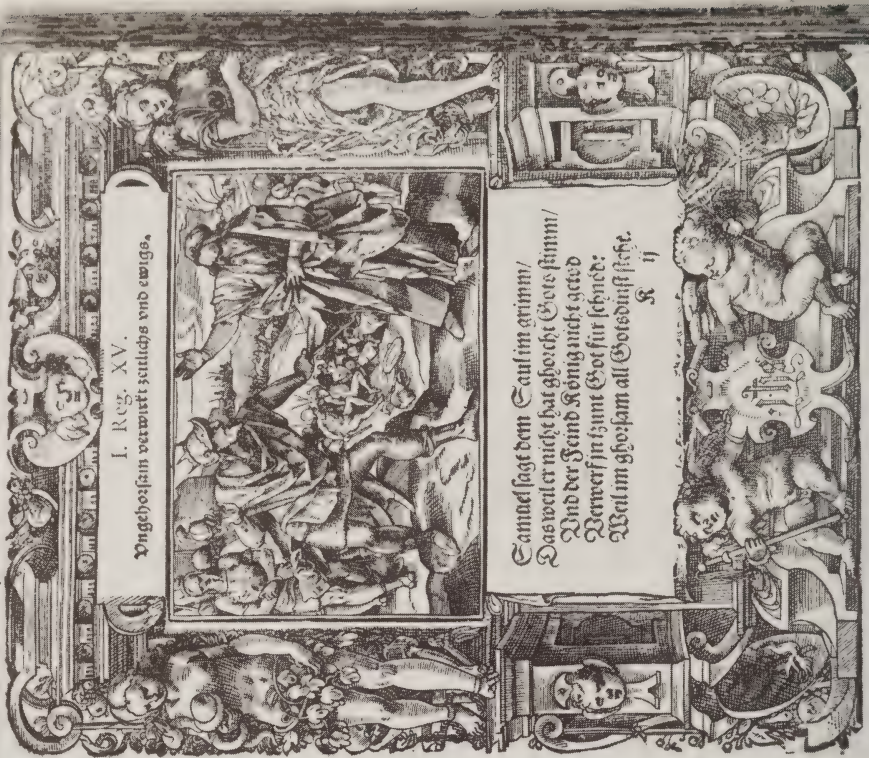 I. Reg. XV.
Vngehorsam verwirkt zeitlichs vnd ewigs.
Samuel sagt dem Saul im grimm/
Das weil er nicht hat ghorcht Gots stimm/
Vnd der Feind König nicht getöd
Verwerf in jzunt Got für schnöd:
Weil im ghorsam all Gotsdinst stehe.
K ij